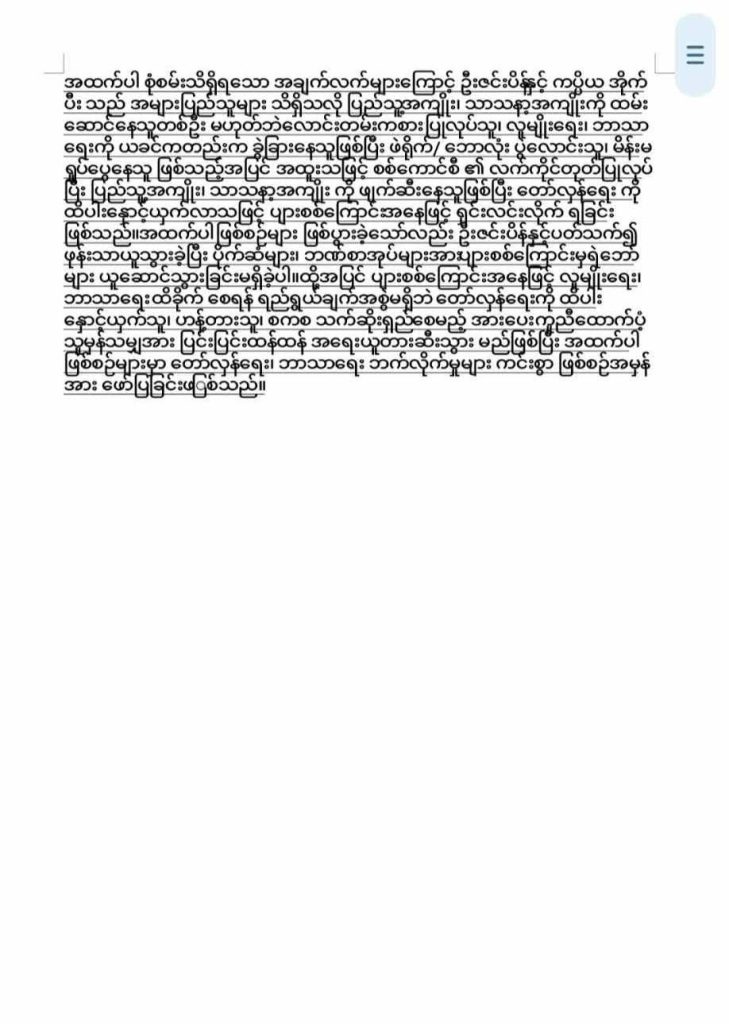 အထက်ပါ စုံစမ်းသိရှိရသော အချက်လက်များကြောင့် ဦးဇင်းပိန်နှင့် ကပ္ပိယ အိုက်
ပီး သည် အများပြည်သူများ သိရှိသလို ပြည်သူ့အကျိုး၊ သာသနာ့အကျိုးကို ထမ်း
ဆောင်နေသူတစ်ဦး မဟုတ်ဘဲလောင်းတမ်းကစားပြုလုပ်သူ၊ လူမျိုးရေး၊ ဘာသာ
ရေးကို ယခင်ကတည်းက ခွဲခြားနေသူဖြစ်ပြီး ဖဲရိုက်/ ဘောလုံး ပွဲလောင်းသူ၊ မိန်းမ
ရှုပ်ပွေနေသူ ဖြစ်သည့်အပြင် အထူးသဖြင့် စစ်ကောင်စီ ၏ လက်ကိုင်တုတ်ပြုလုပ်
ပြီး ပြည်သူ့အကျိုး၊ သာသနာ့အကျိုး ကို ဖျက်ဆီးနေသူဖြစ်ပြီး တော်လှန်ရေး ကို
ထိပါးနှောင့်ယှက်လာသဖြင့် ပျားစစ်ကြောင်းအနေဖြင့် ရှင်းလင်းလိုက် ရခြင်း
ဖြစ်သည်။အထက်ပါဖြစ်စဉ်များ ဖြစ်ပွားခဲ့သော်လည်း ဦးဇင်းပိန်နှင့်ပတ်သက်၍
ဖုန်းသာယူသွားခဲ့ပြီး ပိုက်ဆံများ၊ ဘဏ်စာအုပ်များအားပျားစစ်ကြောင်းမှရဲဘော်
များ ယူဆောင်သွားခြင်းမရှိခဲ့ပါ။ထို့အပြင် ပျားစစ်ကြောင်းအနေဖြင့် လူမျိုးရေး၊
ဘာသာရေးထိခိုက် စေရန် ရည်ရွယ်ချက်အစွဲမရှိဘဲ တော်လှန်ရေးကို ထိပါး
နှောင့်ယှက်သူ၊ ဟန့်တားသူ၊ စကစ သက်ဆိုးရှည်စေမည့် အားပေးကူညီထောက်ပံ့
သူမှန်သမျှအား ပြင်းပြင်းထန်ထန် အရေးယူတားဆီးသွား မည်ဖြစ်ပြီး အထက်ပါ
ဖြစ်စဉ်များမှာ တော်လှန်ရေး၊ ဘာသာရေး ဘက်လိုက်မှုများ ကင်းစွာ ဖြစ်စဉ်အမှန်
အား ဖော်ပြခြင်းဖ​ြစ်သည်။